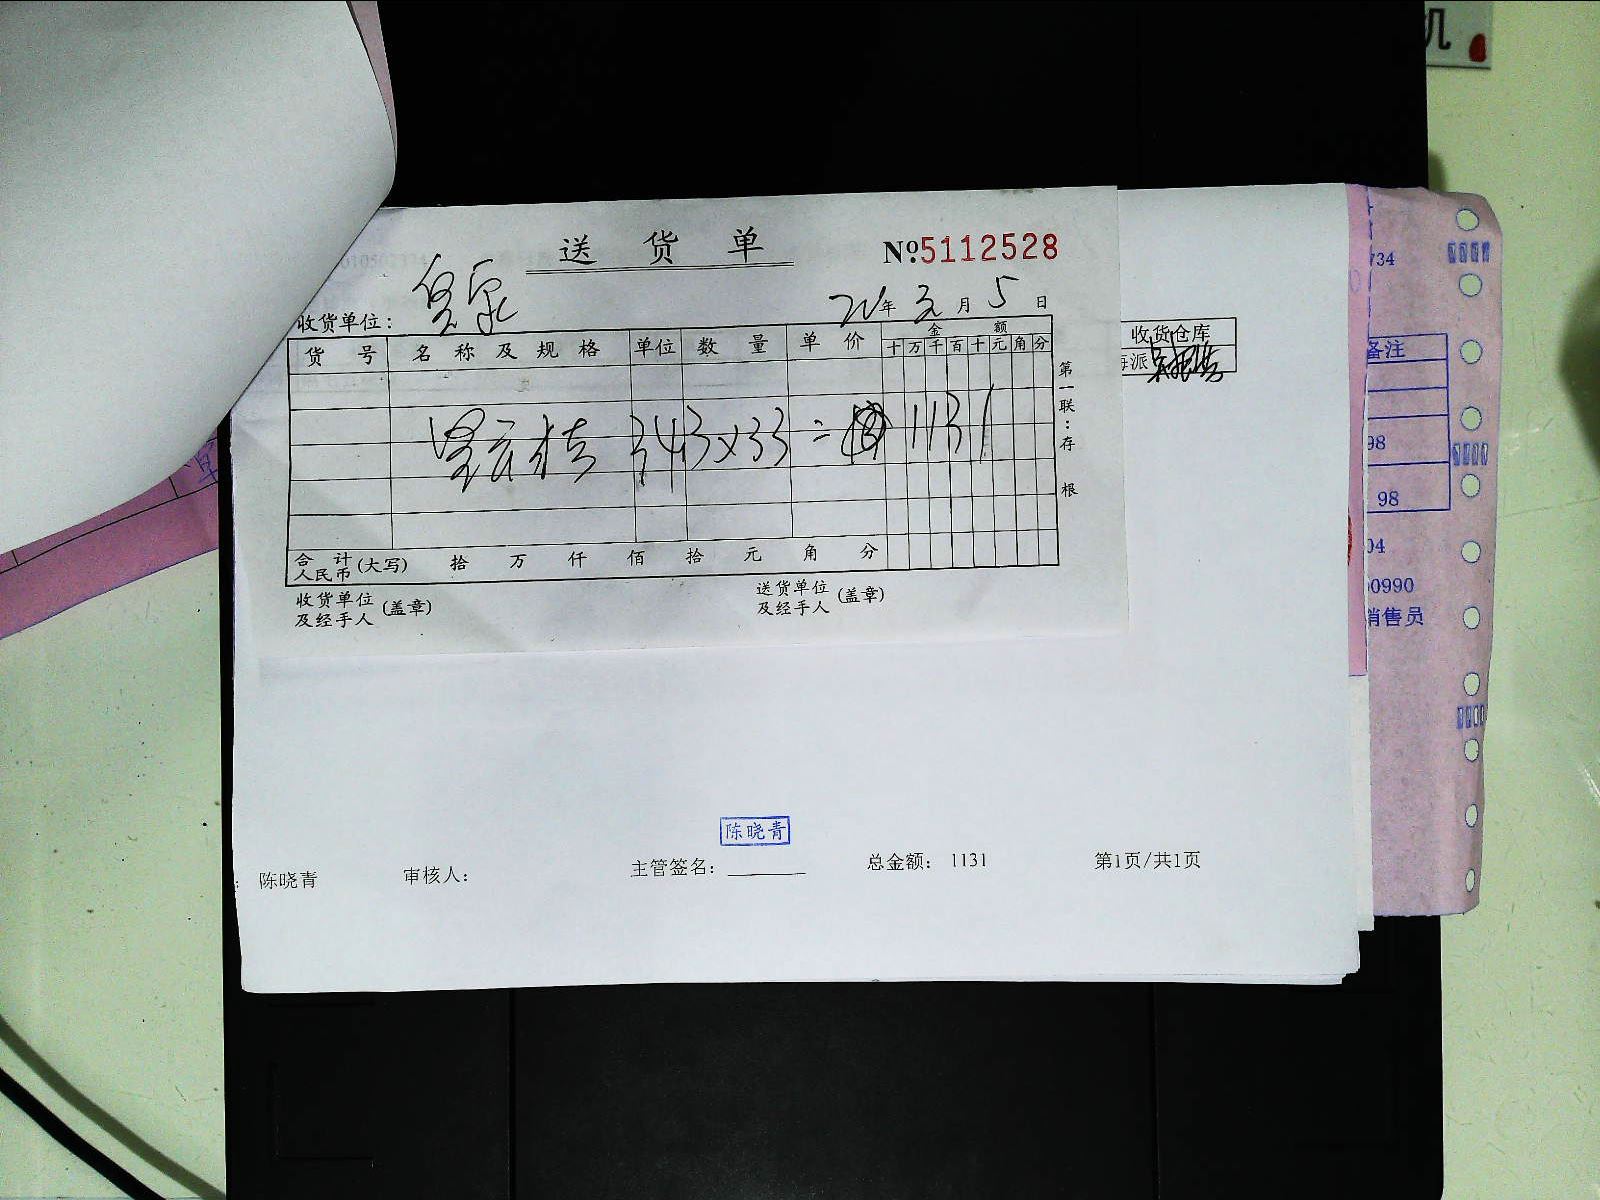 机
送 货 单
№5112528
收货单位：
年 月 5 日
货 号 名 称 及 规 格 单位 数 量 单 价 金 额
十 万 千 百 十 元 角 分
343×33 = 1131
合 计
人民币 (大写) 拾 万 仟 佰 拾 元 角 分
收货单位
及经手人 (盖章)
送货单位
及经手人 (盖章)
第一联：存根
收货仓库
海派
734
备注
98
98
04
00990
销售员
陈晓青
陈晓青 审核人： 主管签名： 总金额： 1131 第1页/共1页